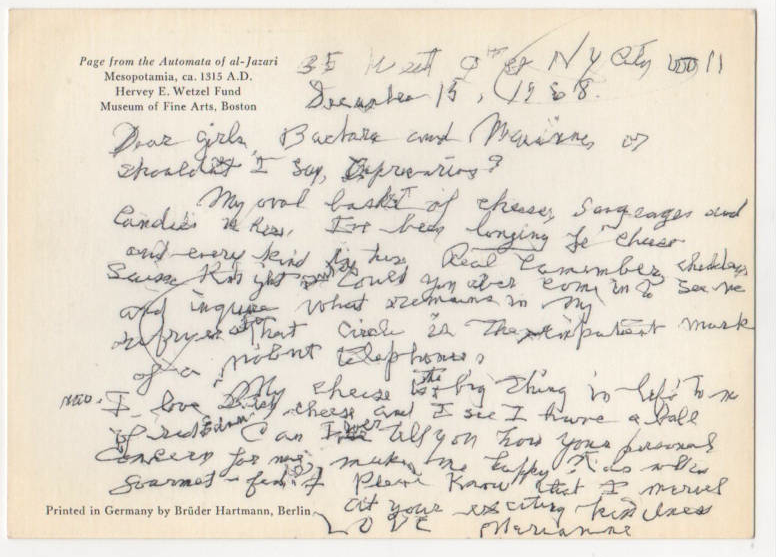 Page from the Automata of al-Jazari
Mesopotamia, ca. 1315 A.D.
Hervey E. Wetzel Fund
Museum of Fine Arts, Boston
35 West 9 NY City 11
December 15, 1968.
Dear girls, Barbara and or
should I say, Impresarios?
My oval basket of cheeses, sausages and
candies is here. I've been longing for cheese
and every kind is here. Real Camembert, cheddar,
Could you ever come in to see me
and inquire what remains in my
that circle is the impatient mark
of a violent telephoner
My cheese is the big thing in life to me
I love cheese and I see I have a ball
of red Can I ever tell you how your personal
concern for me, makes me happy as well as
gourmet - Please know that I marvel
at your exciting kindness
LOVE Marianne
Printed in Germany by Brüder Hartmann, Berlin